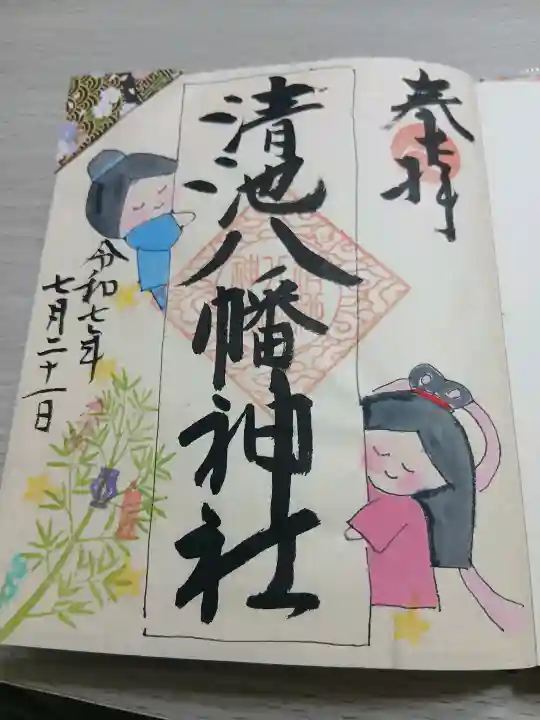 奉拝
清池八幡神社
令和七年
七月二十一日